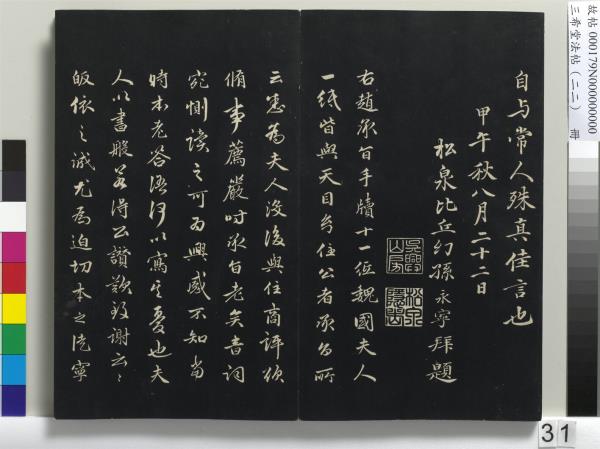 自与常人殊真佳言也
甲午秋八月二十二日
松泉比丘幻孫永寧拜題
右趙承旨手牘十一纸魏國夫人
一纸皆與天目幻住公者承旨所
云悉為夫人沒後與住商評欲
脩事薦嚴時承旨老矣書詞
宛惻读之可為興感不知当
時本老答語何以寫其憂也夫
人以書般若得公讃歎致谢云々
皈依之诚尤為迫切本之
寧
故帖 000179N000000000
三希堂法帖(二二) 冊
31